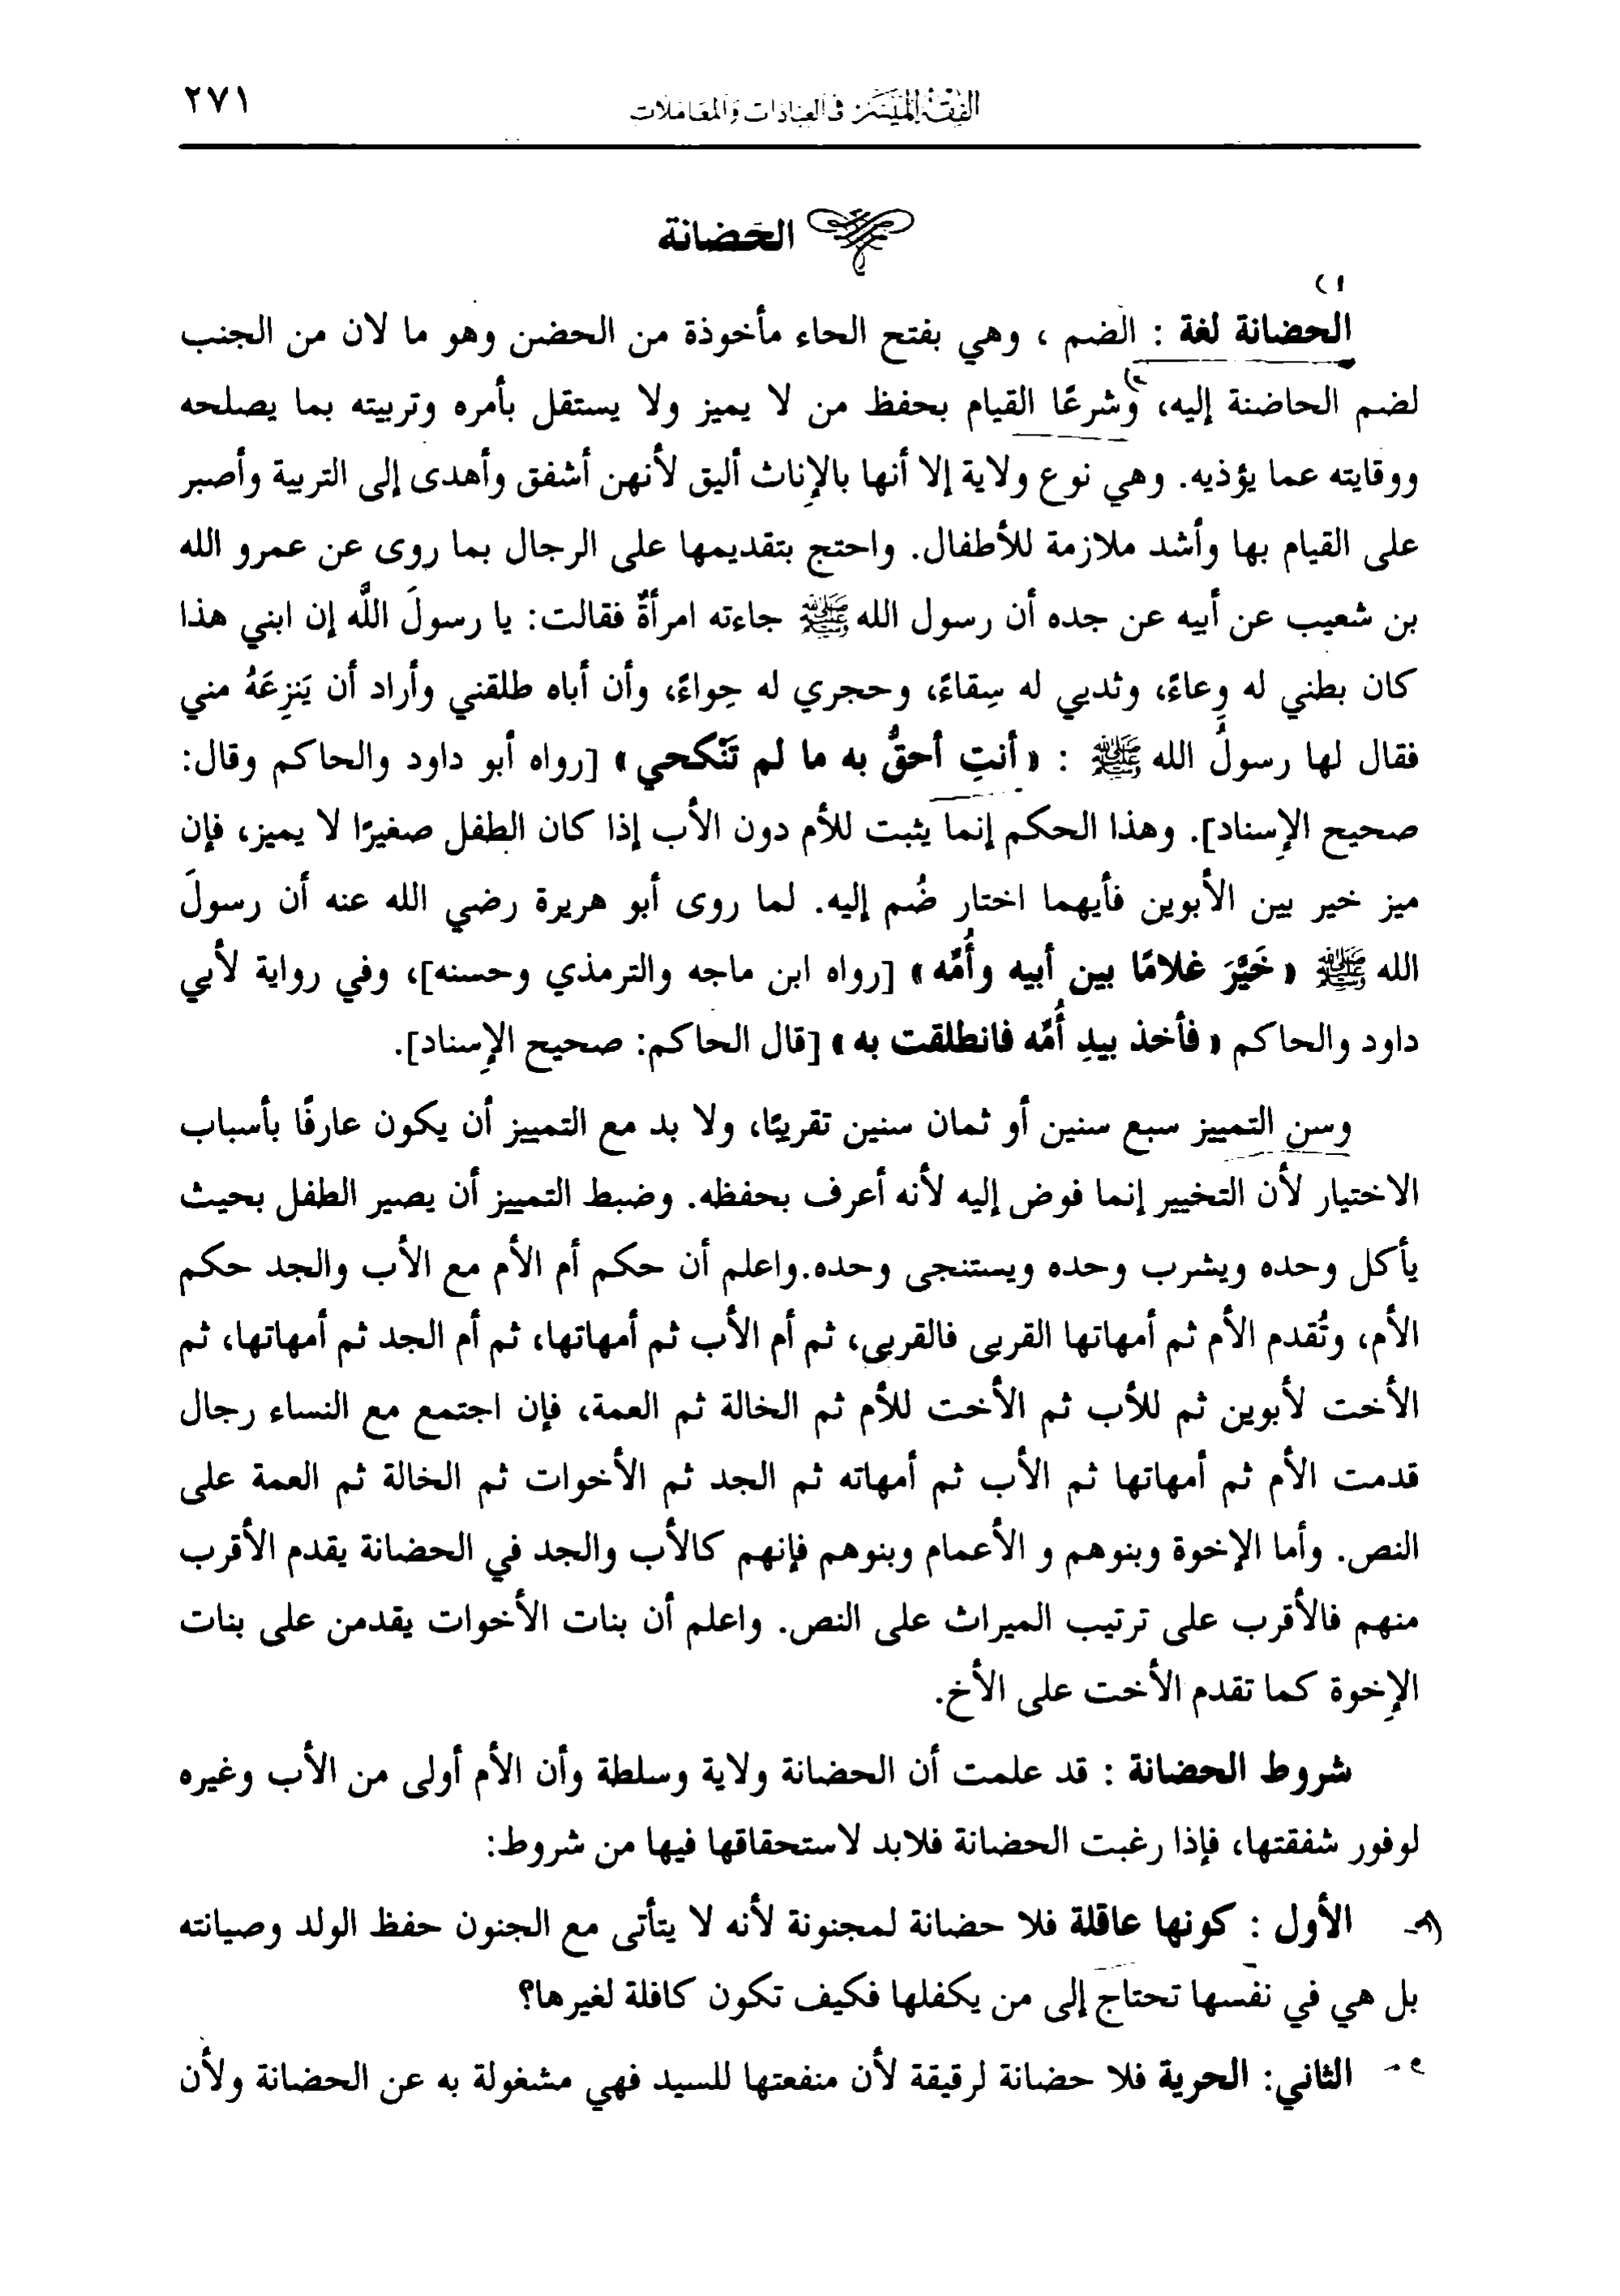 الفقه الميسر في العبادات والمعاملات ٢٧١
الحضانة
(١
الحضانة لغة : الضم ، وهي بفتح الحاء مأخوذة من الحضن وهو ما لان من الجنب
لضم الحاضنة إليه، وشرعًا القيام بحفظ من لا يميز ولا يستقل بأمره وتربيته بما يصلحه
ووقايته عما يؤذيه. وهي نوع ولاية إلا أنها بالإناث أليق لأنهن أشفق وأهدى إلى التربية وأصبر
على القيام بها وأشد ملازمة للأطفال. واحتج بتقديمها على الرجال بما روى عن عمرو الله
بن شعيب عن أبيه عن جده أن رسول الله ﷺ جاءته امرأةٌ فقالت: يا رسولَ اللَّه إن ابني هذا
كان بطني له وِعاءً، وثديي له سِقاءً، وحجري له حِواءً، وأن أباه طلقني وأراد أن يَنزِعَهُ مني
فقال لها رسولُ الله ﷺ : « أنتِ أحقُّ به ما لم تَنْكحي » [رواه أبو داود والحاكم وقال:
صحيح الإسناد]. وهذا الحكم إنما يثبت للأم دون الأب إذا كان الطفل صغيرًا لا يميز، فإن
ميز خير بين الأبوين فأيهما اختار ضُم إليه. لما روى أبو هريرة رضي الله عنه أن رسولَ
الله ﷺ « خَيَّرَ غلامًا بين أبيه وأُمِّه » [رواه ابن ماجه والترمذي وحسنه]، وفي رواية لأبي
داود والحاكم « فأخذ بيدِ أُمِّه فانطلقت به » [قال الحاكم: صحيح الإسناد].
وسن التمييز سبع سنين أو ثمان سنين تقريبًا، ولا بد مع التمييز أن يكون عارفًا بأسباب
الاختيار لأن التخيير إنما فوض إليه لأنه أعرف بحفظه. وضبط التمييز أن يصير الطفل بحيث
يأكل وحده ويشرب وحده ويستنجى وحده.واعلم أن حكم أم الأم مع الأب والجد حكم
الأم، وتُقدم الأم ثم أمهاتها القربى فالقربى، ثم أم الأب ثم أمهاتها، ثم أم الجد ثم أمهاتها، ثم
الأخت لأبوين ثم للأب ثم الأخت للأم ثم الخالة ثم العمة، فإن اجتمع مع النساء رجال
قدمت الأم ثم أمهاتها ثم الأب ثم أمهاته ثم الجد ثم الأخوات ثم الخالة ثم العمة على
النص. وأما الإخوة وبنوهم و الأعمام وبنوهم فإنهم كالأب والجد في الحضانة يقدم الأقرب
منهم فالأقرب على ترتيب الميراث على النص. واعلم أن بنات الأخوات يقدمن على بنات
الإخوة كما تقدم الأخت على الأخ.
شروط الحضانة : قد علمت أن الحضانة ولاية وسلطة وأن الأم أولى من الأب وغيره
لوفور شفقتها، فإذا رغبت الحضانة فلابد لاستحقاقها فيها من شروط:
الأول : كونها عاقلة فلا حضانة لمجنونة لأنه لا يتأتى مع الجنون حفظ الولد وصيانته
بل هي في نفسها تحتاج إلى من يكفلها فكيف تكون كافلة لغيرها؟
الثاني: الحرية فلا حضانة لرقيقة لأن منفعتها للسيد فهي مشغولة به عن الحضانة ولأن